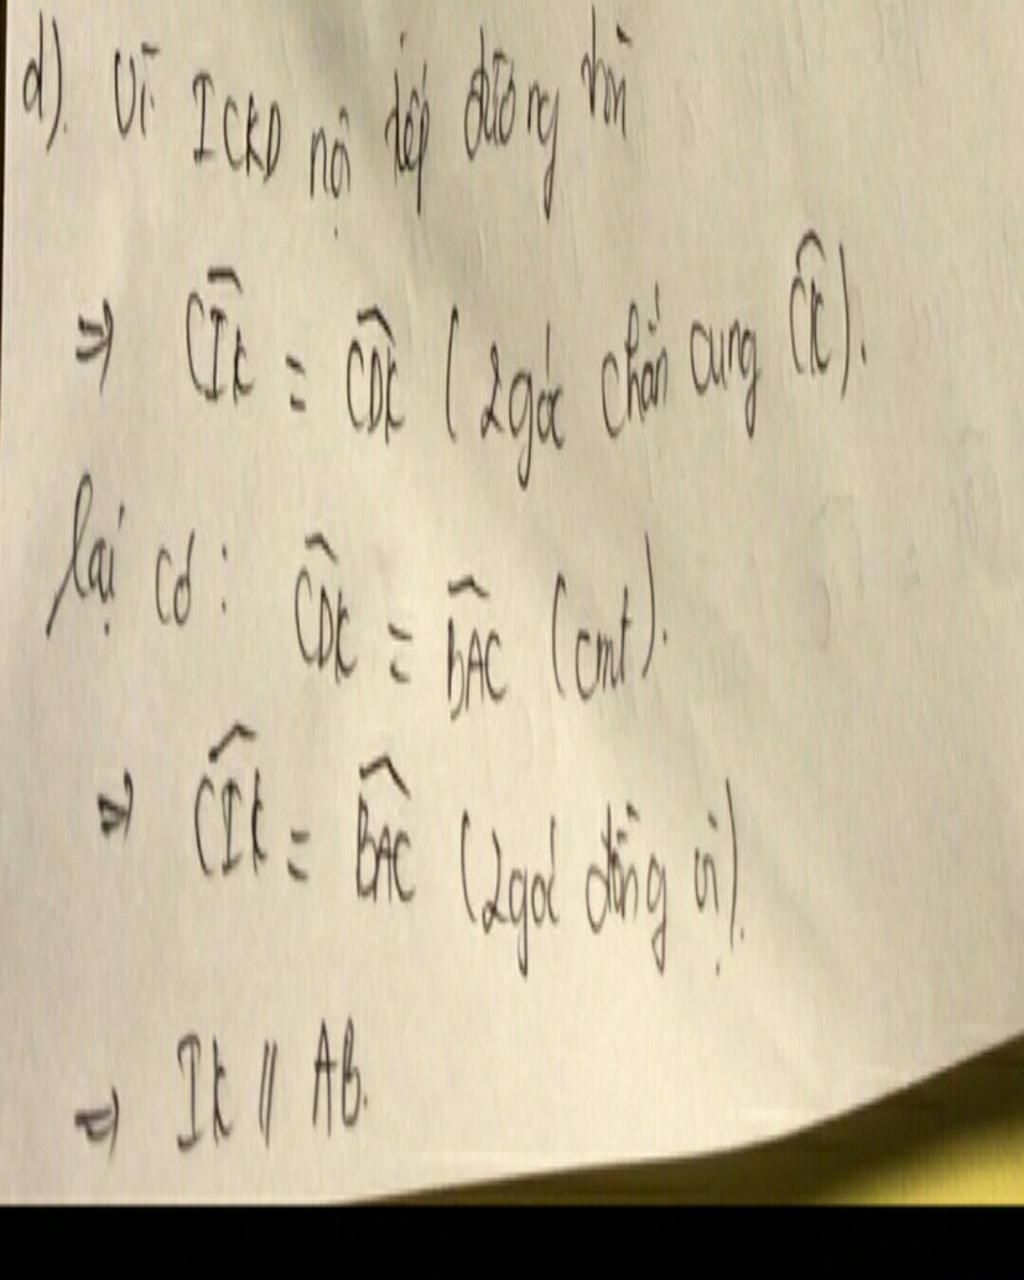 d). Vì ICKD nội tiếp đường tròn
⇒ \widehat{CIK} = \widehat{CDK} (2 góc chắn cung \widehat{CK}).
lại có: \widehat{CDK} = \widehat{BAC} (cmt).
⇒ \widehat{CIK} = \widehat{BAC} (2 góc đồng vị).
⇒ IK // AB.